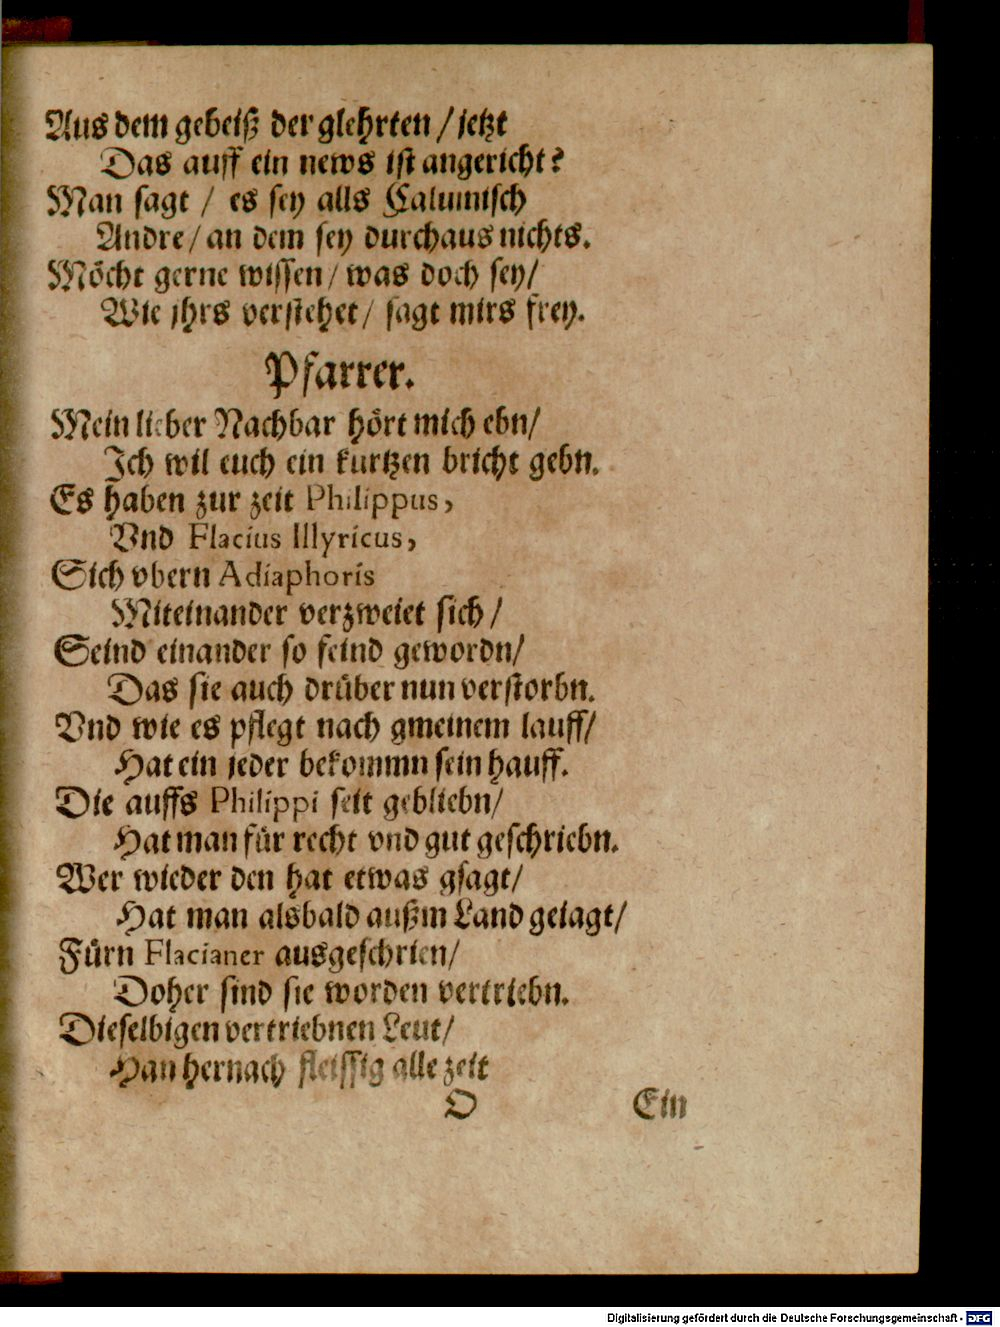 Aus dem gebeiß der glehrten / jetzt
Das auff ein news ist angericht?
Man sagt / es sey alls Caluinisch
Andre / an dem sey durchaus nichts.
Möcht gerne wissen / was doch sey /
Wie jhrs verstehet / sagt mirs frey.
Pfarrer.
Mein lieber Nachbar hört mich ebn /
Ich wil euch ein kurtzen bricht gebn.
Es haben zur zeit Philippus,
Vnd Flacius Illyricus,
Sich vbern Adiaphoris
Miteinander verzweiet sich /
Seind einander so feind gewordn /
Das sie auch drüber nun verstorbn.
Vnd wie es pflegt nach gmeinem lauff /
Hat ein jeder bekommn sein hauff.
Die auffs Philippi seit gebliebn /
Hat man für recht vnd gut geschriebn.
Wer wieder den hat etwas gsagt /
Hat man alsbald außm Land gejagt /
Fürn Flacianer ausgeschrien /
Doher sind sie worden vertriebn.
Dieselbigen vertriebnen Leut /
Han hernach fleissig alle zeit
D Ein
Digitalisierung gefördert durch die Deutsche Forschungsgemeinschaft - DFG